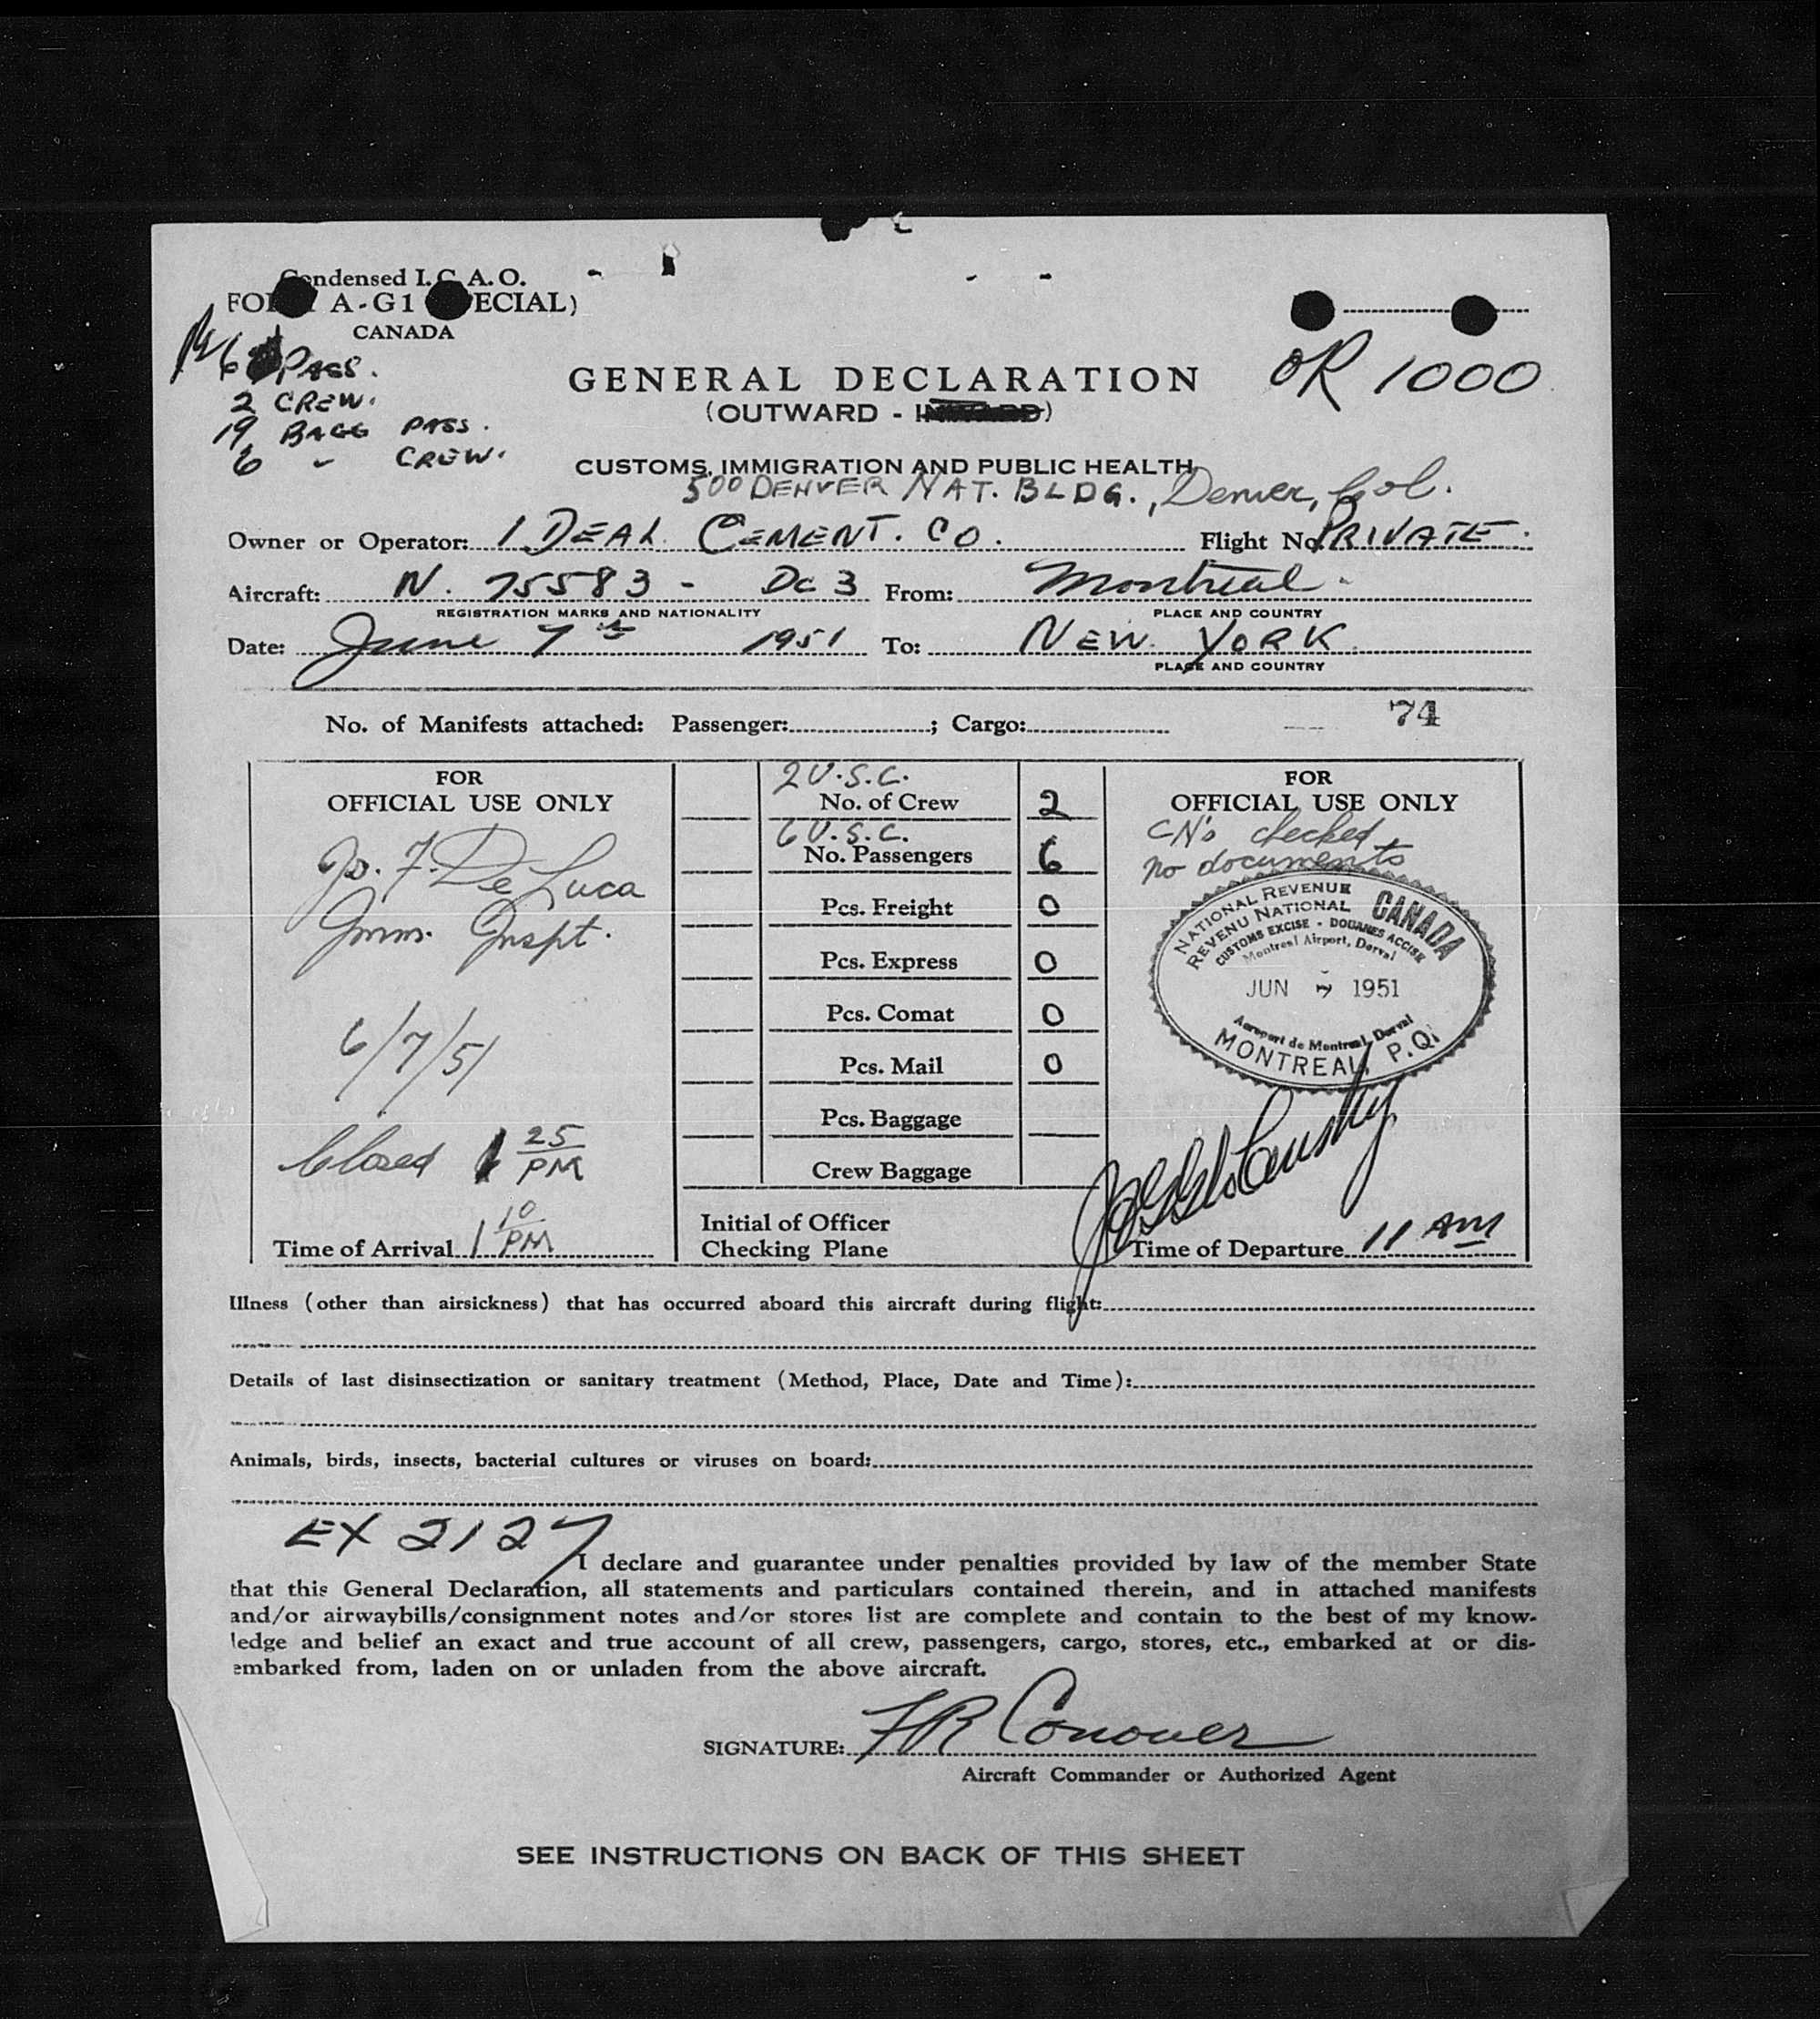 Condensed I.C.A.O.
A-G1
CANADA
6 PASS.
2 CREW.
19 BAGG PASS.
6 " CREW.
GENERAL DECLARATION
OR 1000
(OUTWARD - )
CUSTOMS, IMMIGRATION AND PUBLIC HEALTH
500 DENVER NAT. BLDG., Denver, Col.
Owner or Operator: IDEAL CEMENT. CO. Flight No. PRIVATE.
Aircraft: N. 75583 - DC 3 From: Montreal.
REGISTRATION MARKS AND NATIONALITY PLACE AND COUNTRY
Date: June 7th 1951 To: NEW YORK
PLACE AND COUNTRY
No. of Manifests attached: Passenger: ; Cargo: 74
FOR
OFFICIAL USE ONLY
Jos. F. De Luca
Imm. Inspt.
6/7/51
Closed 1 25 PM
Time of Arrival 1 10 PM
2 U.S.C.
No. of Crew 2
6 U.S.C.
No. Passengers 6
Pcs. Freight 0
Pcs. Express 0
Pcs. Comat 0
Pcs. Mail 0
Pcs. Baggage
Crew Baggage
Initial of Officer
Checking Plane
FOR
OFFICIAL USE ONLY
CN's checked
no documents
NATIONAL REVENUE
REVENU NATIONAL
CANADA
CUSTOMS EXCISE - DOUANES ACCISE
Montreal Airport, Dorval
JUN 7 1951
Aeroport de Montreal, Dorval
MONTREAL, P.Q.
Time of Departure 11 AM
Illness (other than airsickness) that has occurred aboard this aircraft during flight:
Details of last disinsectization or sanitary treatment (Method, Place, Date and Time):
Animals, birds, insects, bacterial cultures or viruses on board:
EX 2127
I declare and guarantee under penalties provided by law of the member State
that this General Declaration, all statements and particulars contained therein, and in attached manifests
and/or airwaybills/consignment notes and/or stores list are complete and contain to the best of my know-
ledge and belief an exact and true account of all crew, passengers, cargo, stores, etc., embarked at or dis-
embarked from, laden on or unladen from the above aircraft.
SIGNATURE: FR Conover
Aircraft Commander or Authorized Agent
SEE INSTRUCTIONS ON BACK OF THIS SHEET